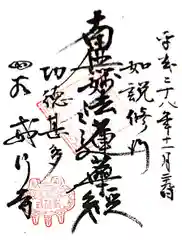 平成二十八年十一月
如説修行
南無妙法蓮華経
功徳甚多
大
寺